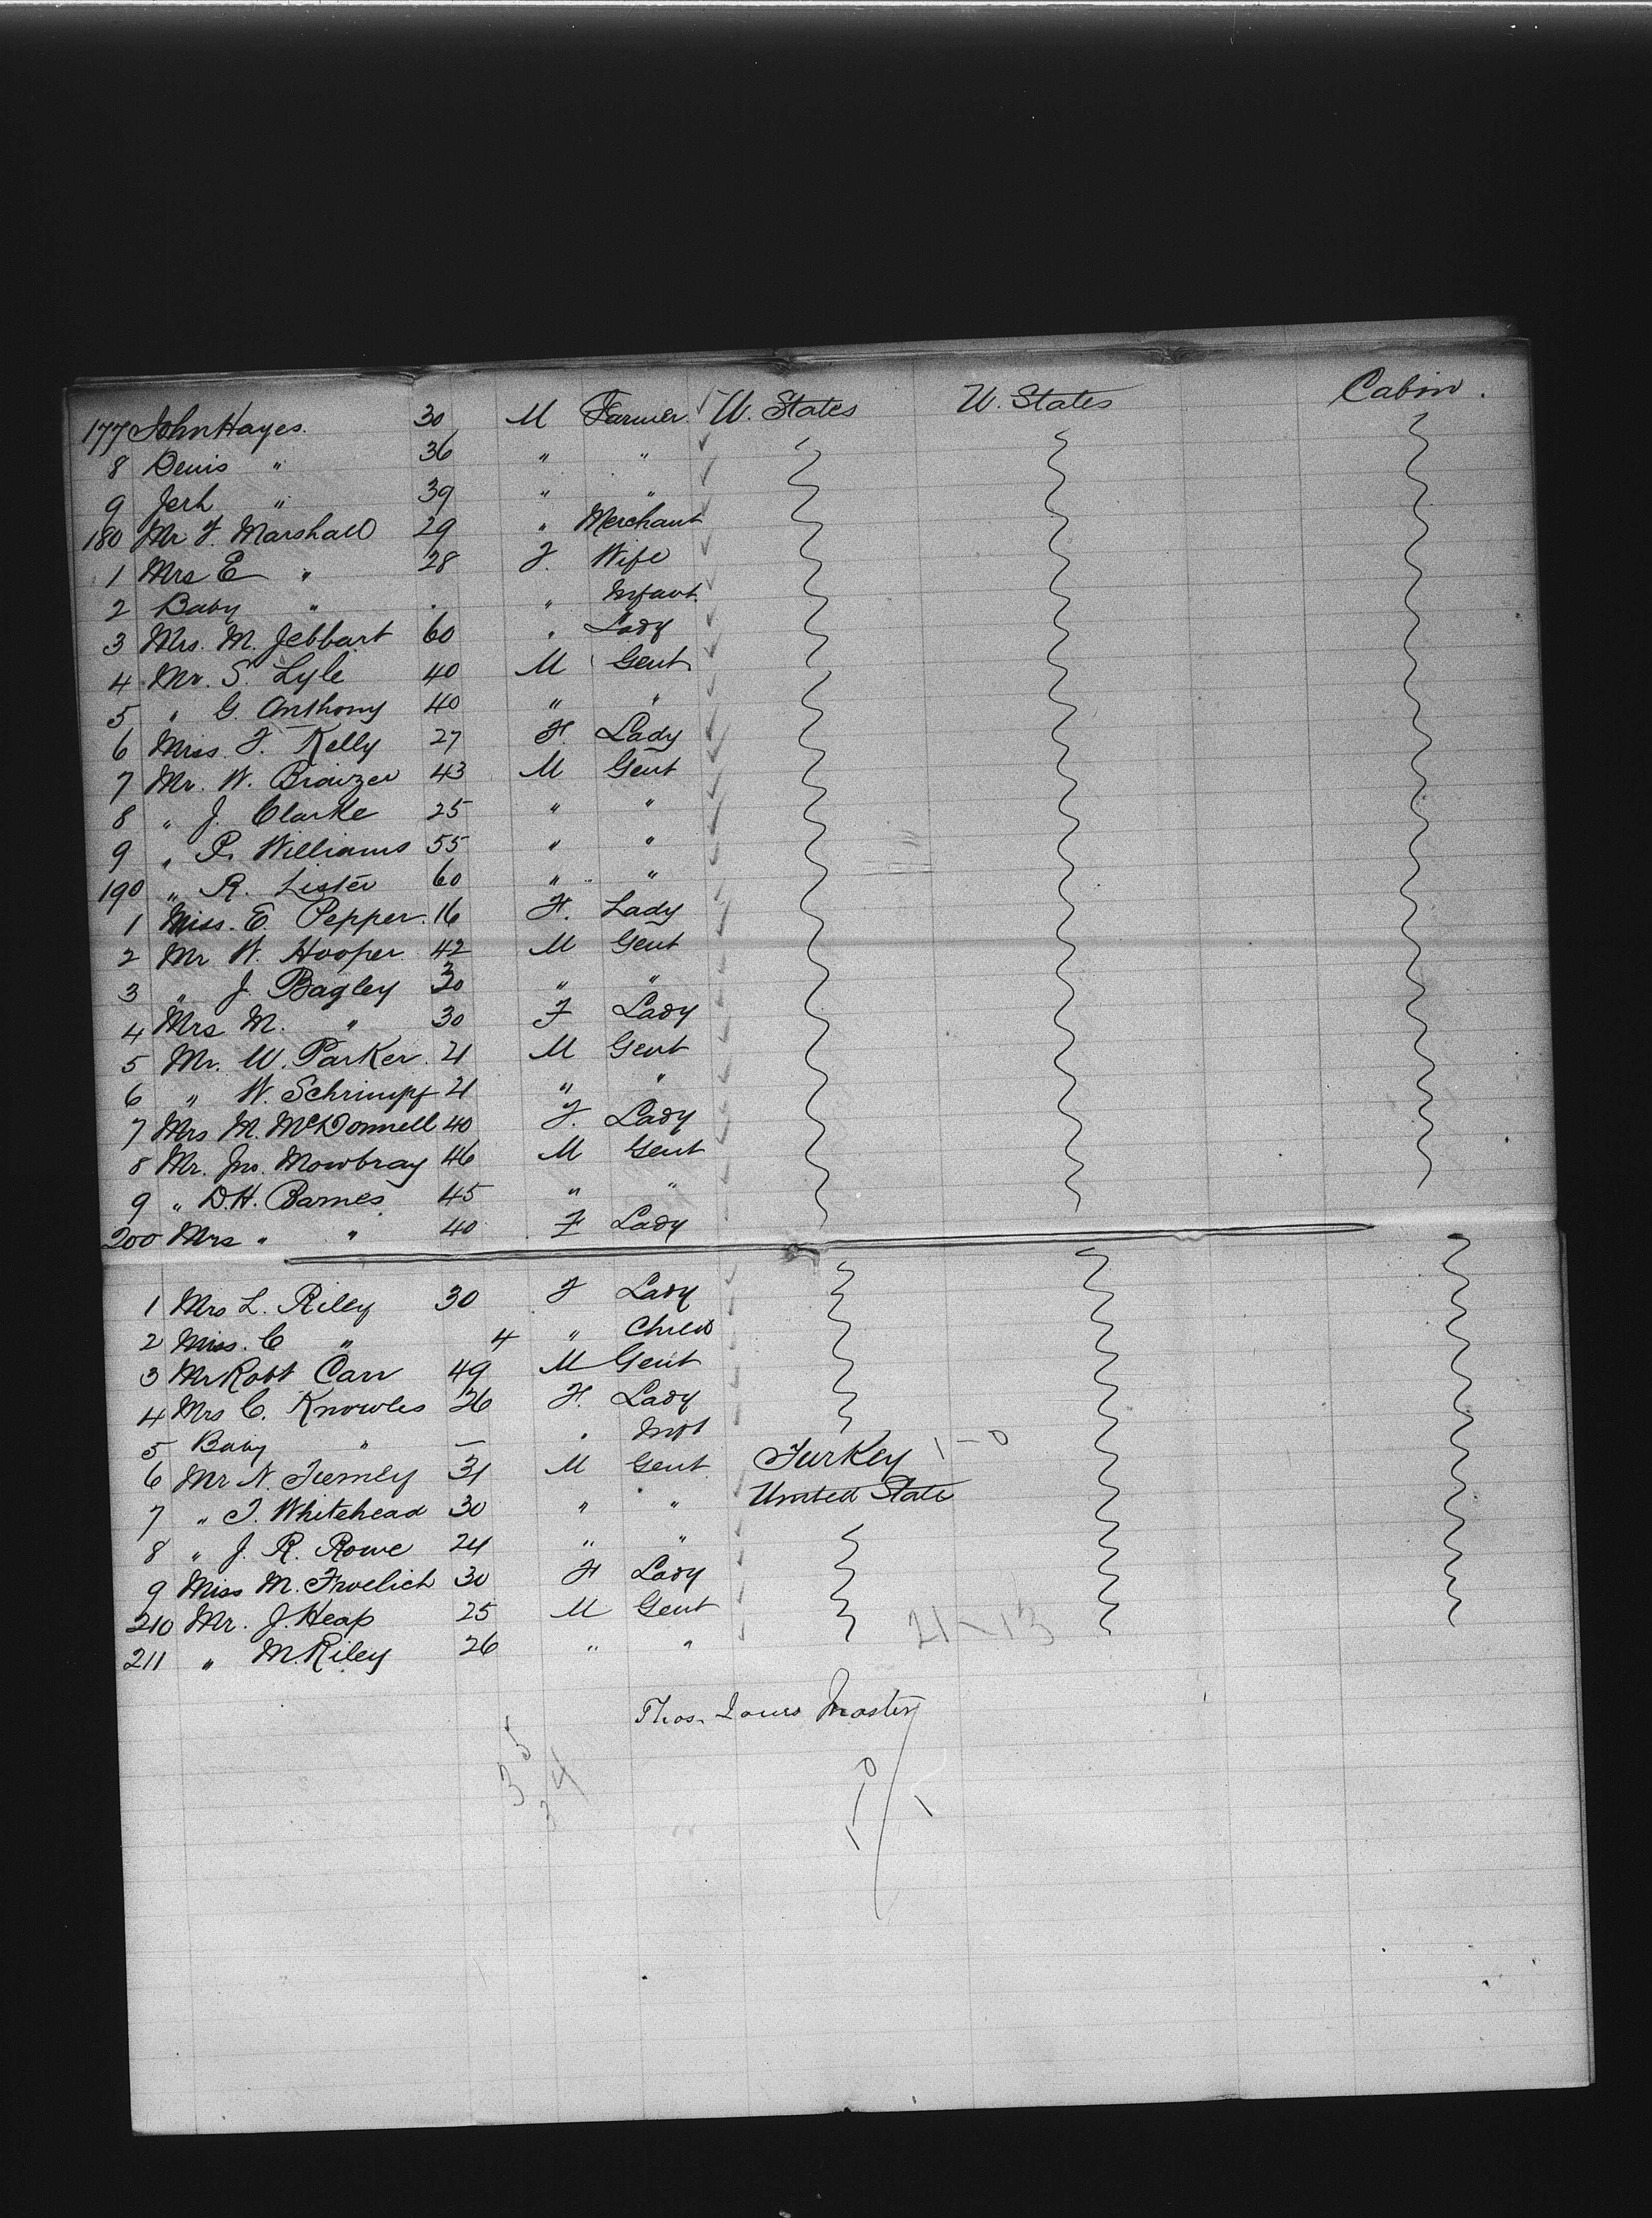 177 John Hayes. 30 M Farmer. W. States W. States Cabin.
8 Denis " 36 " "
9 Jerh " 39 " "
180 Mr F. Marshall 29 " Merchant
1 Mrs E " 28 F. Wife
2 Baby " . " Infant.
3 Mrs. M. Jebbart 60 " Lady
4 Mr. S. Lyle 40 M Gent
5 " G. Anthony 40 " "
6 Miss. F. Kelly 27 F. Lady
7 Mr. W. 43 M Gent
8 " J. Clarke 25 " "
9 " P. Williams 55 " "
190 " R. Lister 60 " "
1 Miss. E. Pepper. 16 F. Lady
2 Mr W. Hooper 42 M Gent
3 " J. Bagley 30 " "
4 Mrs M. " 30 F Lady
5 Mr. W. Parker. 21 M Gent
6 " W. Schrimpf 21 " "
7 Mrs M. McDonnell 40 F. Lady
8 Mr. Jno. Mowbray 46 M Gent
9 " D.H. Barnes 45 " "
200 Mrs " " 40 F Lady
1 Mrs L. Riley 30 F Lady
2 Miss. C " 4 " Child
3 Mr Robt Carr 49 M Gent
4 Mrs C. Knowles 26 F. Lady
5 Baby " — " Inft
6 Mr N. 31 M Gent Turkey 1-0
7 " T. Whitehead 30 " " United State
8 " J. R. Rowe 24 " "
9 Miss M. Froelich 30 F Lady
210 Mr. J. Heap 25 M Gent 21-13
211 " M. Riley 26 " "
Thos. Master
35
34
1-0
1